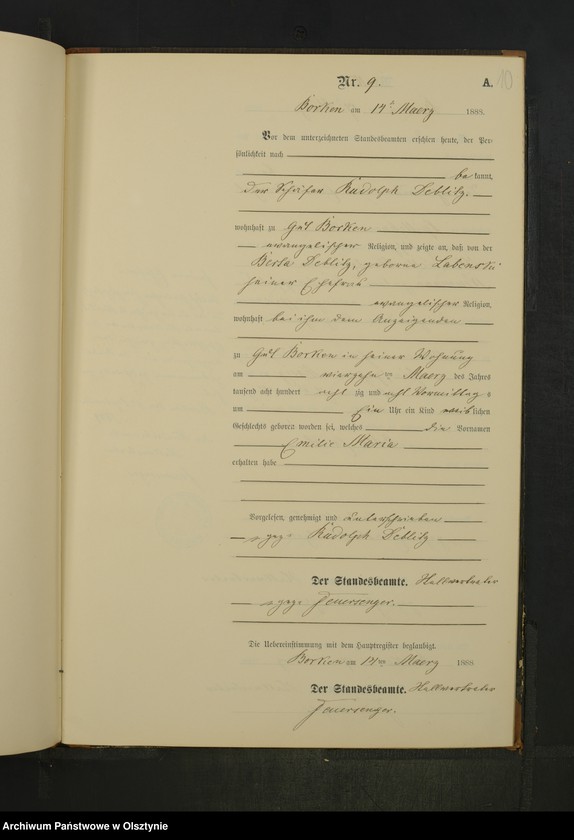 Nr. 9. A. 10
Borken am 14ten Maerz 1888.
Vor dem unterzeichneten Standesbeamten erschien heute, der Per-
sönlichkeit nach
be kannt,
der Rudolph Deblitz.
wohnhaft zu Gut Borken
evangelischer Religion, und zeigte an, daß von der
Deblitz, geborne Labenski
seiner Ehefrau
evangelischer Religion,
wohnhaft bei ihm dem Anzeigenden
zu Gut Borken in seiner Wohnung
am vierzehnten Maerz des Jahres
tausend acht hundert acht zig und acht Vormittag
um Ein Uhr ein Kind weiblichen
Geschlechts geboren worden sei, welches die Vornamen
Emilie Maria
erhalten habe
Vorgelesen, genehmigt und unterschrieben
gez. Rudolph Deblitz
Der Standesbeamte.
gez. Feuersenger.
Die Uebereinstimmung mit dem Hauptregister beglaubigt.
Borken am 14ten Maerz 1888
Der Standesbeamte.
Feuersenger.
Archiwum Państwowe w Olsztynie